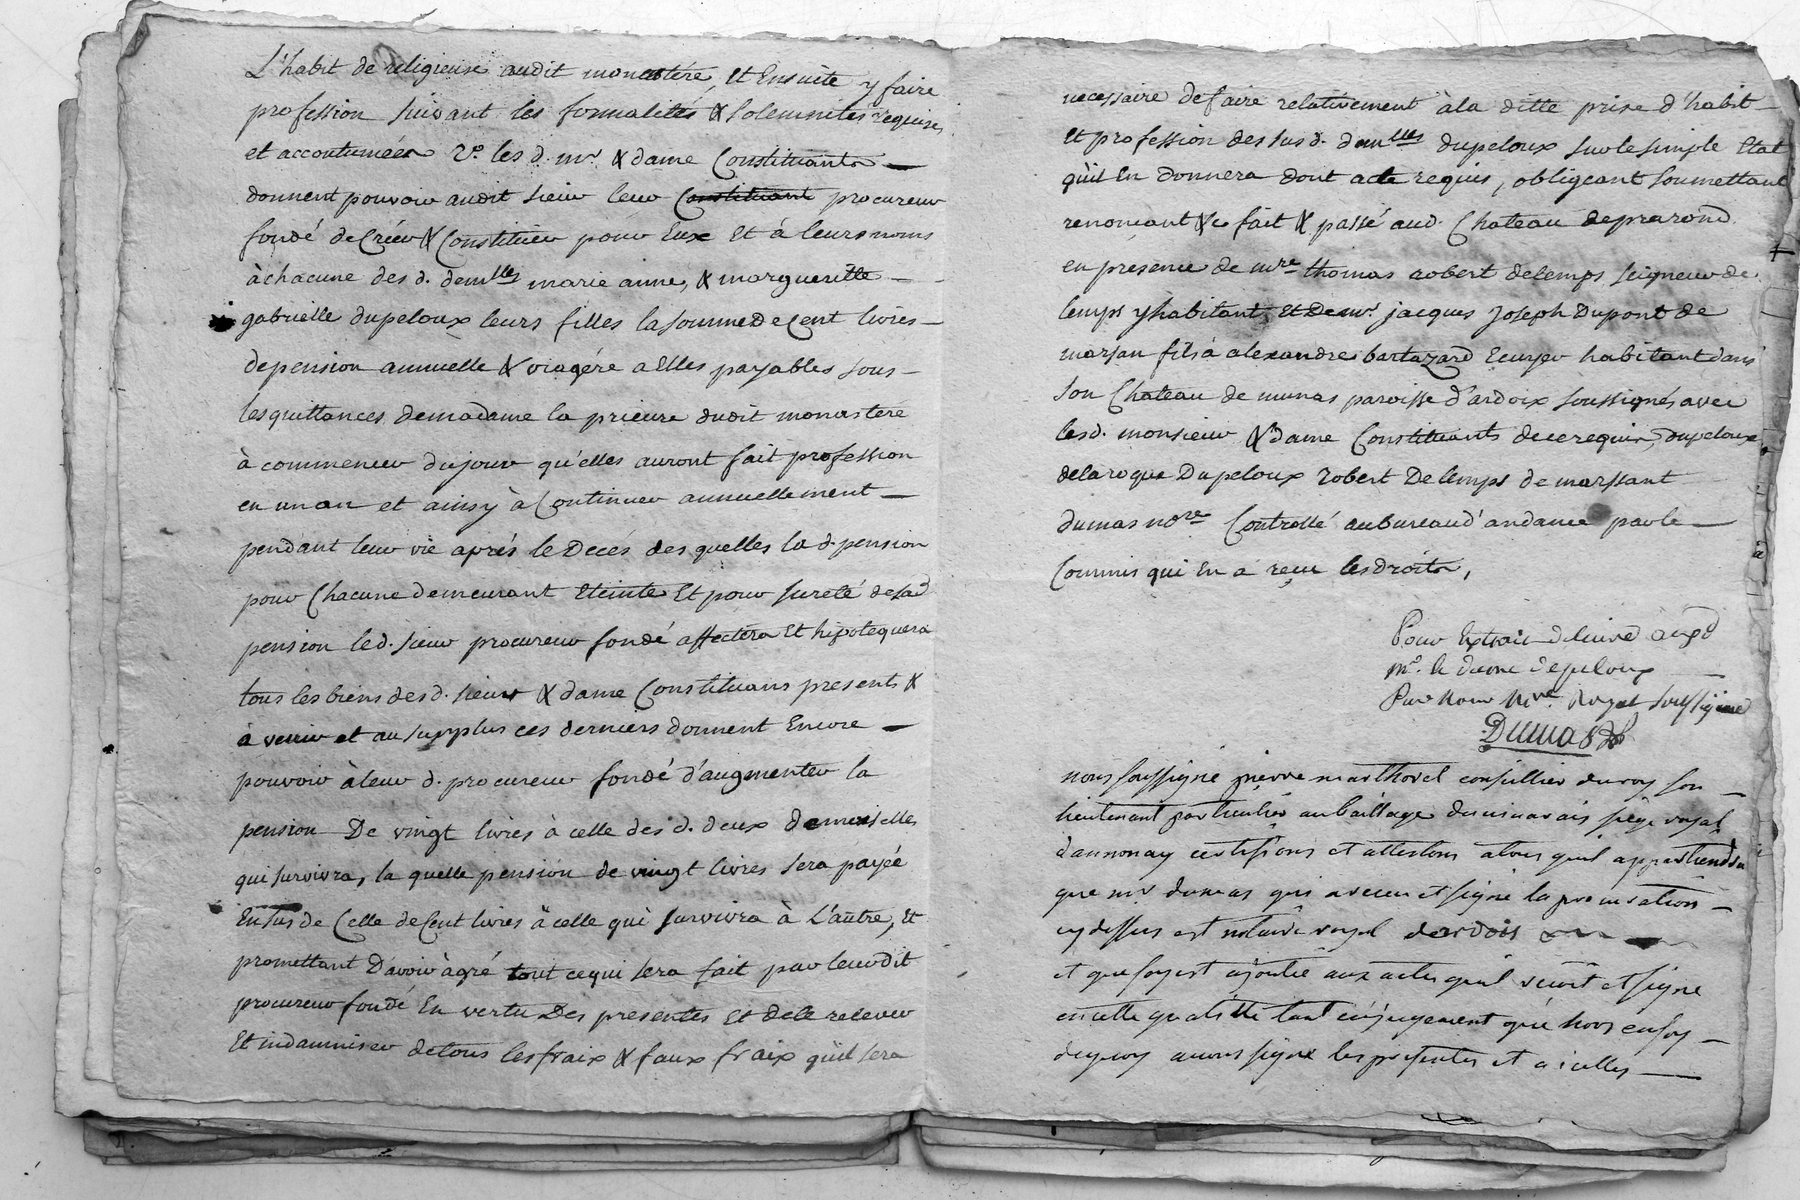 L'habit de religieuse audit monastére, et Ensuite y faire
profession suivant les formalités & solemnités requises
et accoutumées 2º. les d. mr. & dame Constituants
donnent pouvoir audit sieur leur Constituant procureur
fondé de Créer & Constituer pour Eux Et à leurs noms
à chacune des d. demlles marie anne, & margueritte
gabrielle dupeloux leurs filles la somme de Cent livres
de pension annuelle & viagére a Elles payables sous
les quittances de madame la prieure dudit monastere
à commencer du jour qu'elles auront fait profession
en un an et ainsy à Continuer annuellement
pendant leur vie aprés le Decés des quelles la d. pension
pour Chacune demeurant Eteinte Et pour sureté de lad
pension led. sieur procureur fondé affectera Et hipotequera
tous les biens des d. sieur & dame Constituans presents &
à venir et au surplus ces derniers donnent Encore
pouvoir à leur d. procureur fondé d'augmenter la
pension De vingt livres à celle des d. deux demoiselles
qui survivra, la quelle pension de vingt livres sera payée
En sus de Celle de Cent livres à celle qui survivra à L'autre, Et
promettant D'avoir àgré tout cequi sera fait par leurdit
procureur fondé En vertu Des presentes Et dele relever
Et indamniser de tous les fraix & faux fraix qu'il sera
necessaire de faire relativement àla ditte prise d'habit
Et profession des sus d. demlles dupeloux sur le simple Etat
qu'il En donnera dont acte requis, obligeant soumettant
renonçant &c fait & passé aud. Chateau de prarond
en presence de mre thomas robert delemps seigneur de
lemps y habitant, Et De mr. jacques Joseph Dupont de
marsan fils à alexandre bartazard Ecuyer habitant dans
son Chateau de munas paroisse d'ardoix soussignés avec
lesd. monsieur & dame Constituants de ce requis, dupeloux
delaroque Dupeloux robert Delemps de marssant
dumas nore Controllé au bureau d'andance par le
Commis qui En a reçu les droits,
Pour Extrait delivré
mr. le dupeloux
Par Nous Nre. Royal soussigné
Dumas
nous soussigné pierre marthoret conseillier du roy son
lieutenant particulier au baillage du vivarais siège royal
d'annonay certifions et attestons atous quil appartiendra
que mr dumas qui a receu et signé la procuration
cy dessus est notaire royal dardois
et que foy est ajoutée aux actes quil recoit et signe
en cette qualitté tant en jugement que hors en foy
dequoy avons signé les presentes et a icelles